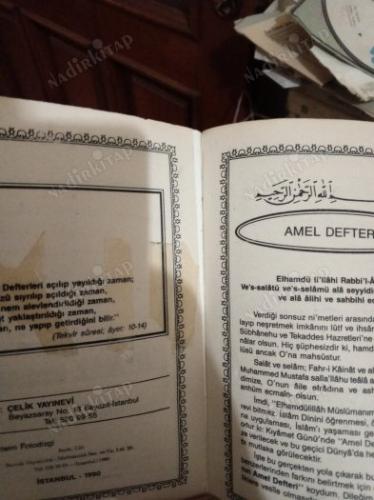 Defterleri açılıp yayıldığı zaman;
sıyrılıp açıldığı zaman,
alevlendirildiği zaman,
yaklaştırıldığı zaman,
ne yapıp getirdiğini bilir."
(Tekvir sûresi; âyet: 10-14)
ÇELİK YAYINEVİ
Beyazsaray No.
İSTANBUL - 1990
AMEL DEFTER
Elhamdü li'llâhi Rabbi'l-
Ve's-salâtü ve's-selâmü alâ seyyidi
ve alâ âlihi ve sahbihi
Verdiği sonsuz ni'metleri arasında
layıp neşretmek imkânını lütf ve ihsân
Sübhânehu ve Tekaddes Hazretleri'ne
nâlar olsun. Hiç şüphesizdir ki, hamd
lüsü ancak O'na mahsûstur.
Salât ve selâm; Fahr-i Kâinât ve
Muhammed Mustafa salla'llâhu teâlâ a
dimize, O'nun âile efrâdına ve ashâ
ecmaîn- olsun.
İmdi, "Elhamdülillâh Müslümanım
revi bitmez. İslâm Dinini öğrenmesi,
ve uygulaması, İslâm'ı yaşaması ge
ortur ki: Kıyâmet Günü'nde "Amel De
za verilecek ve bu geçici Dünyâ'da he
mutlaka görülecektir.
İşte bu gerçekten yola çıkarak bu
benzerlerinden farkını belirtmek için
mel Defteri" koydum. Bileğin
nadirkitap